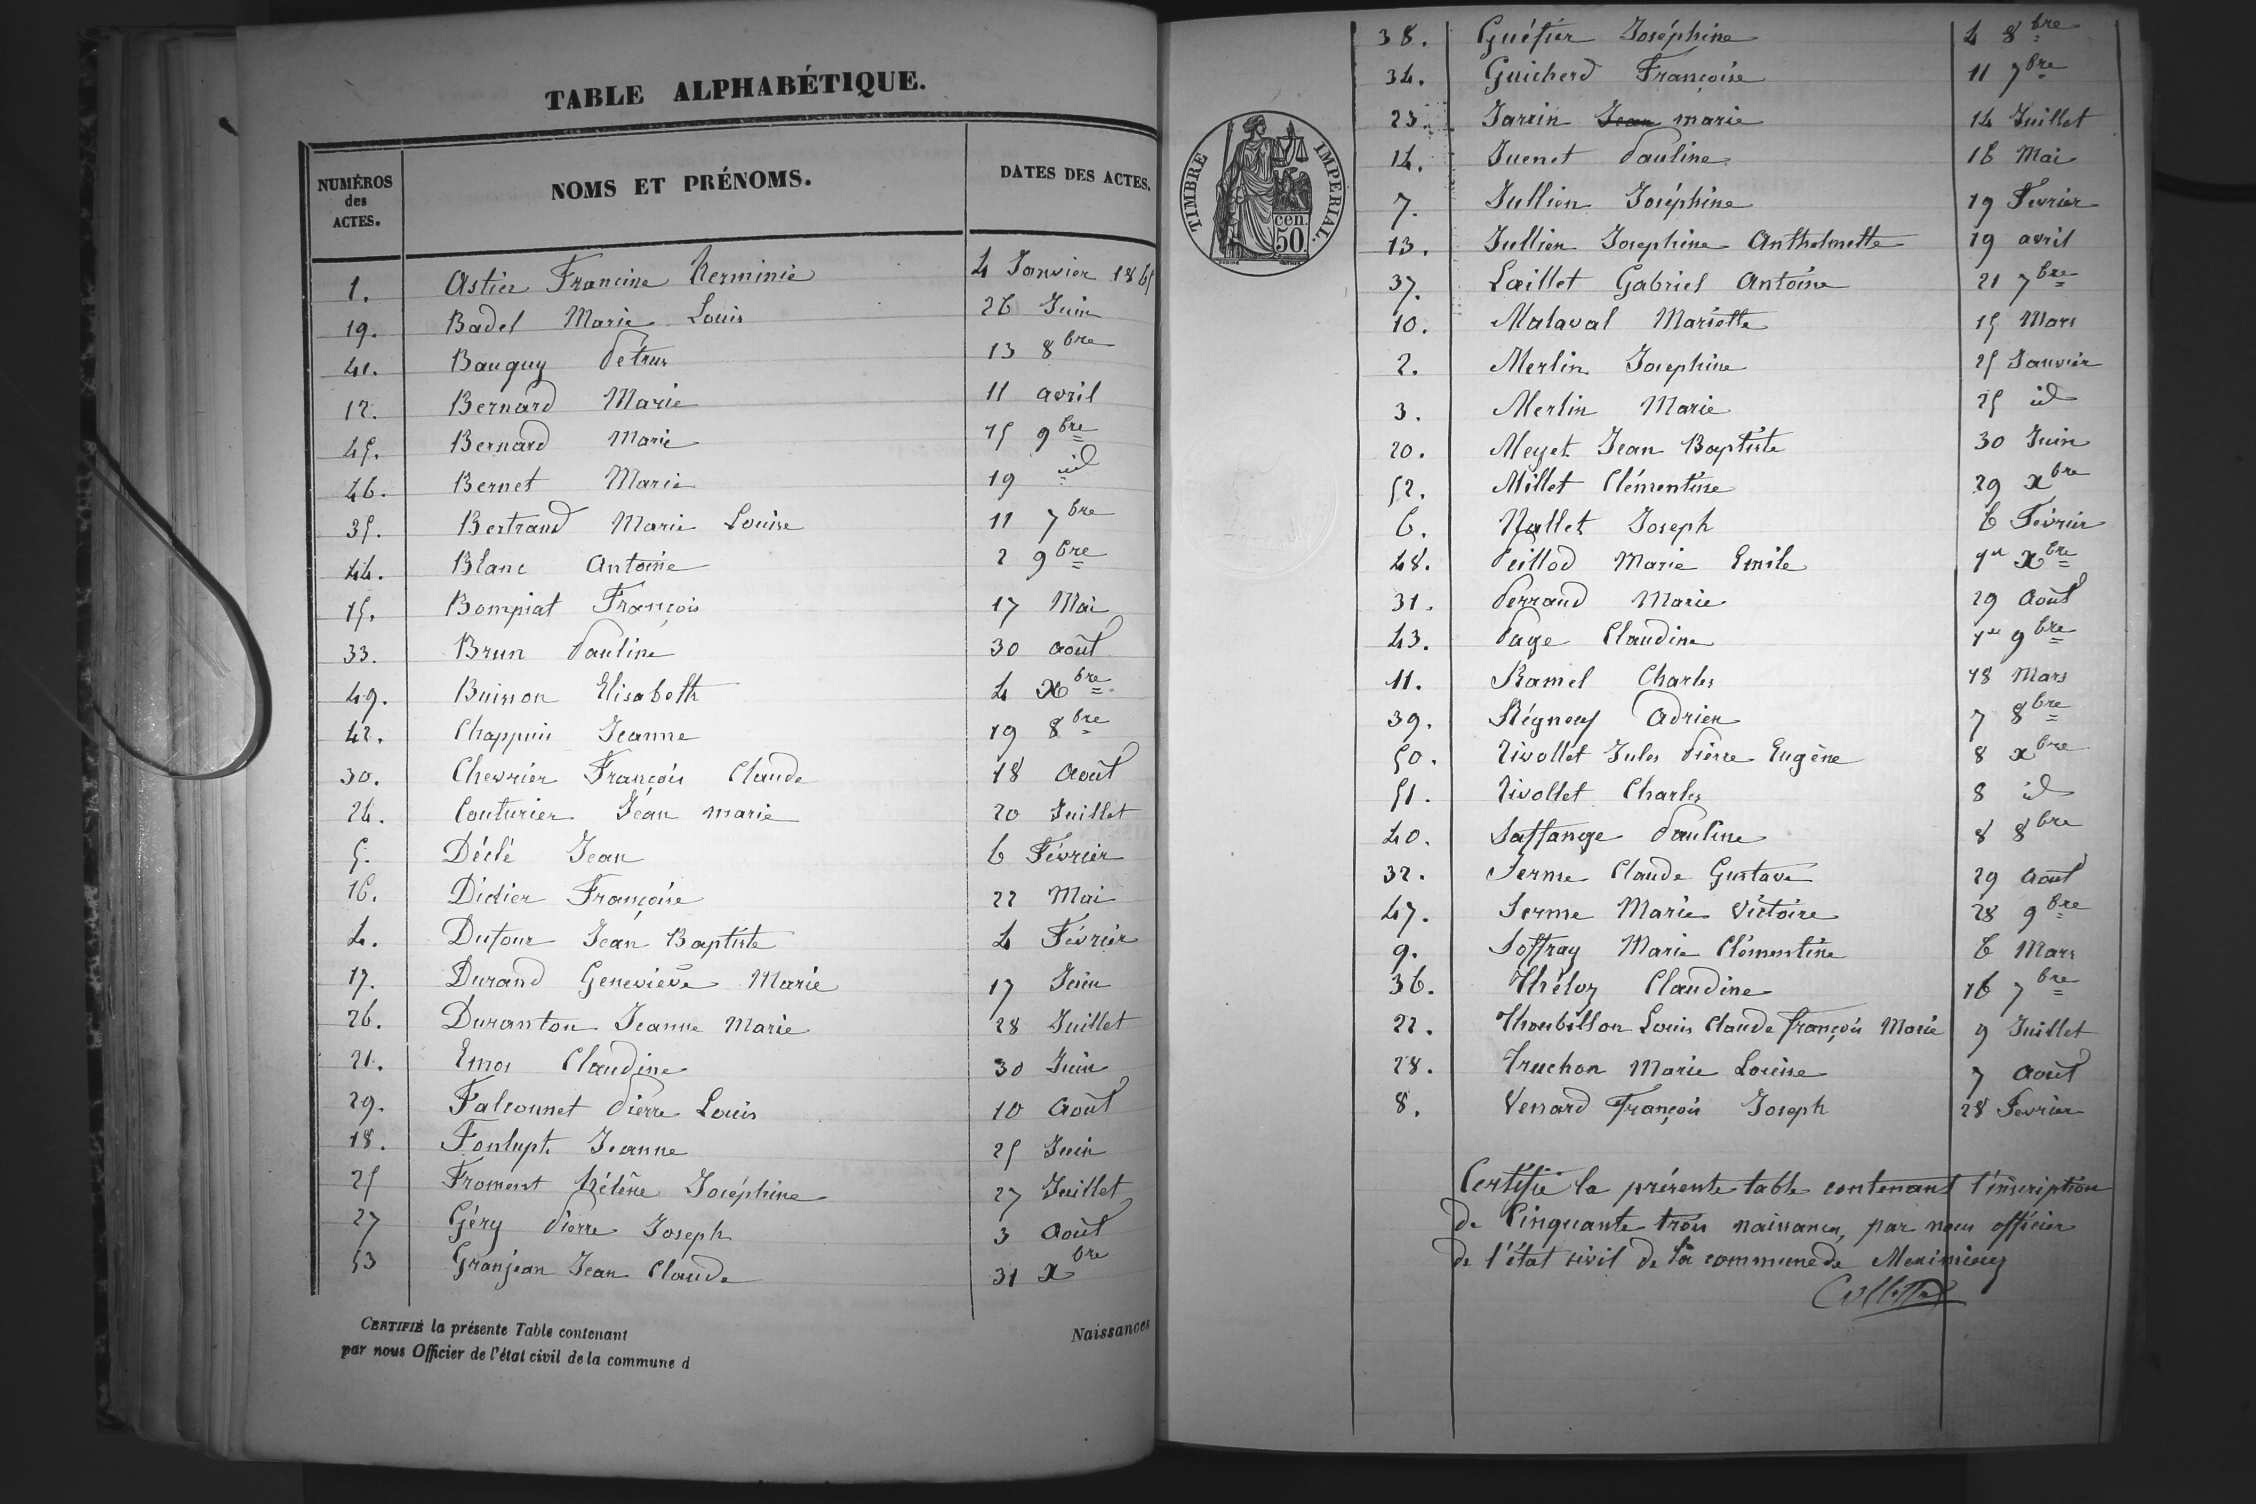 TABLE ALPHABÉTIQUE.
NUMÉROS des ACTES. NOMS ET PRÉNOMS. DATES DES ACTES.
1. Astier Francine Herminie 4 Janvier 1865
19. Badel Marie Louis 26 Juin
41. Bauguy Pétrus 13 8bre
12. Bernard Marie 11 avril
45. Bernard Marie 15 9bre
46. Bernet Marie 19 id
35. Bertrand Marie Louise 11 7bre
44. Blanc Antoine 2 9bre
15. Bompiat François 17 Mai
33. Brun Pauline 30 août
49. Buisson Elisabeth 4 xbre
42. Chappuis Jeanne 19 8bre
30. Chevrier François Claude 18 Août
24. Couturier Jean marie 20 Juillet
5. Déclé Jean 6 Février
16. Didier Françoise 22 Mai
4. Dufour Jean Baptiste 4 Février
17. Durand Geneviève Marie 17 Juin
26. Duranton Jeanne Marie 28 Juillet
21. Emos Claudine 30 Juin
29. Falconnet Pierre Louis 10 Août
18. Fonlupt Jeanne 25 Juin
25 Froment Hélène Joséphine 27 Juillet
27 Géry Pierre Joseph 3 Août
53 Granjean Jean Claude 31 xbre
CERTIFIÉ la présente Table contenant Naissances
par nous Officier de l'état civil de la commune d
38. Guétier Joséphine 4 8bre
34. Guicherd Françoise 11 7bre
TIMBRE IMPERIAL.
50 cen.
23. Jarrin Jean marie 14 Juillet
14. Juenet Pauline 16 Mai
7. Jullien Joséphine 19 Fevrier
13. Jullien Josephine Anthelmette 19 avril
37. Laillet Gabriel Antoine 21 7bre
10. Malaval Mariette 15 Mars
2. Merlin Josephine 25 Janvier
3. Merlin Marie 25 id
20. Meyet Jean Baptiste 30 Juin
52. Millet Clémentine 29 xbre
6. Nallet Joseph 6 Février
48. Peillod Marie Emile 1er xbre
31. Perrand Marie 29 Août
43. Page Claudine 1er 9bre
11. Ramel Charles 18 Mars
39. Régneux Adrien 7 8bre
50. Rivollet Jules Pierre Eugène 8 xbre
51. Rivollet Charles 8 id
40. Saffange Pauline 8 8bre
32. Serme Claude Gustave 29 Août
47. Serme Marie Victoire 28 9bre
9. Soffray Marie Clémentine 6 Mars
36. Théloz Claudine 16 7bre
22. Thoubillon Louis Claude François Marie 9 Juillet
28. Truchon Marie Louise 7 Août
8. Venard François Joseph 28 Fevrier
Certifié la présente table contenant l'inscription
de Cinquante trois naissances, par nous officier
de l'état civil de la commune de Meximieux